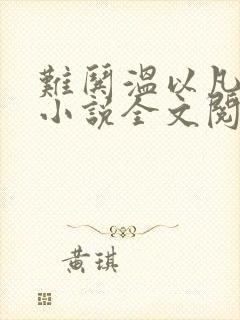 難鬨溫以凡
小說全文閱
黃琪